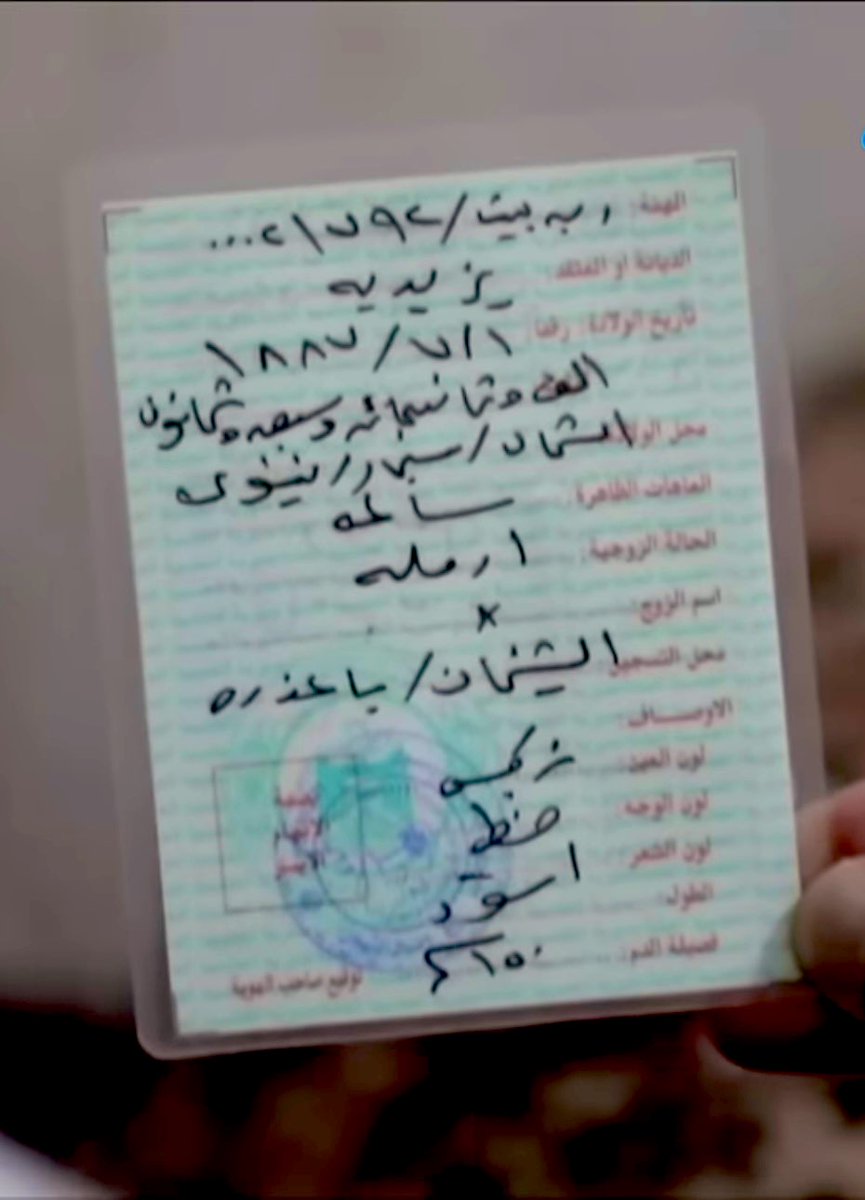 المهنة: ربه بيت / ٢١٧٩٢...
الديانة او المعتقد: يزيديه
تاريخ الولادة: رقما: ١ / ٧ / ١٨٨٧
الف وثمانمائه وسبعه وثمانون
محل الولادة: / سنجار / نينوى
العاهات الظاهرة: سالمه
الحالة الزوجية: ارمله
اسم الزوج: x
محل التسجيل: الشيخان / باعذره
الاوصـاف:
لون العين:
لون الوجه: حنطي
لون الشعر: اسود
الطول:
فصيلة الدم: ١٥٠
بصمة
الابهام
الايسر
توقيع صاحب الهوية